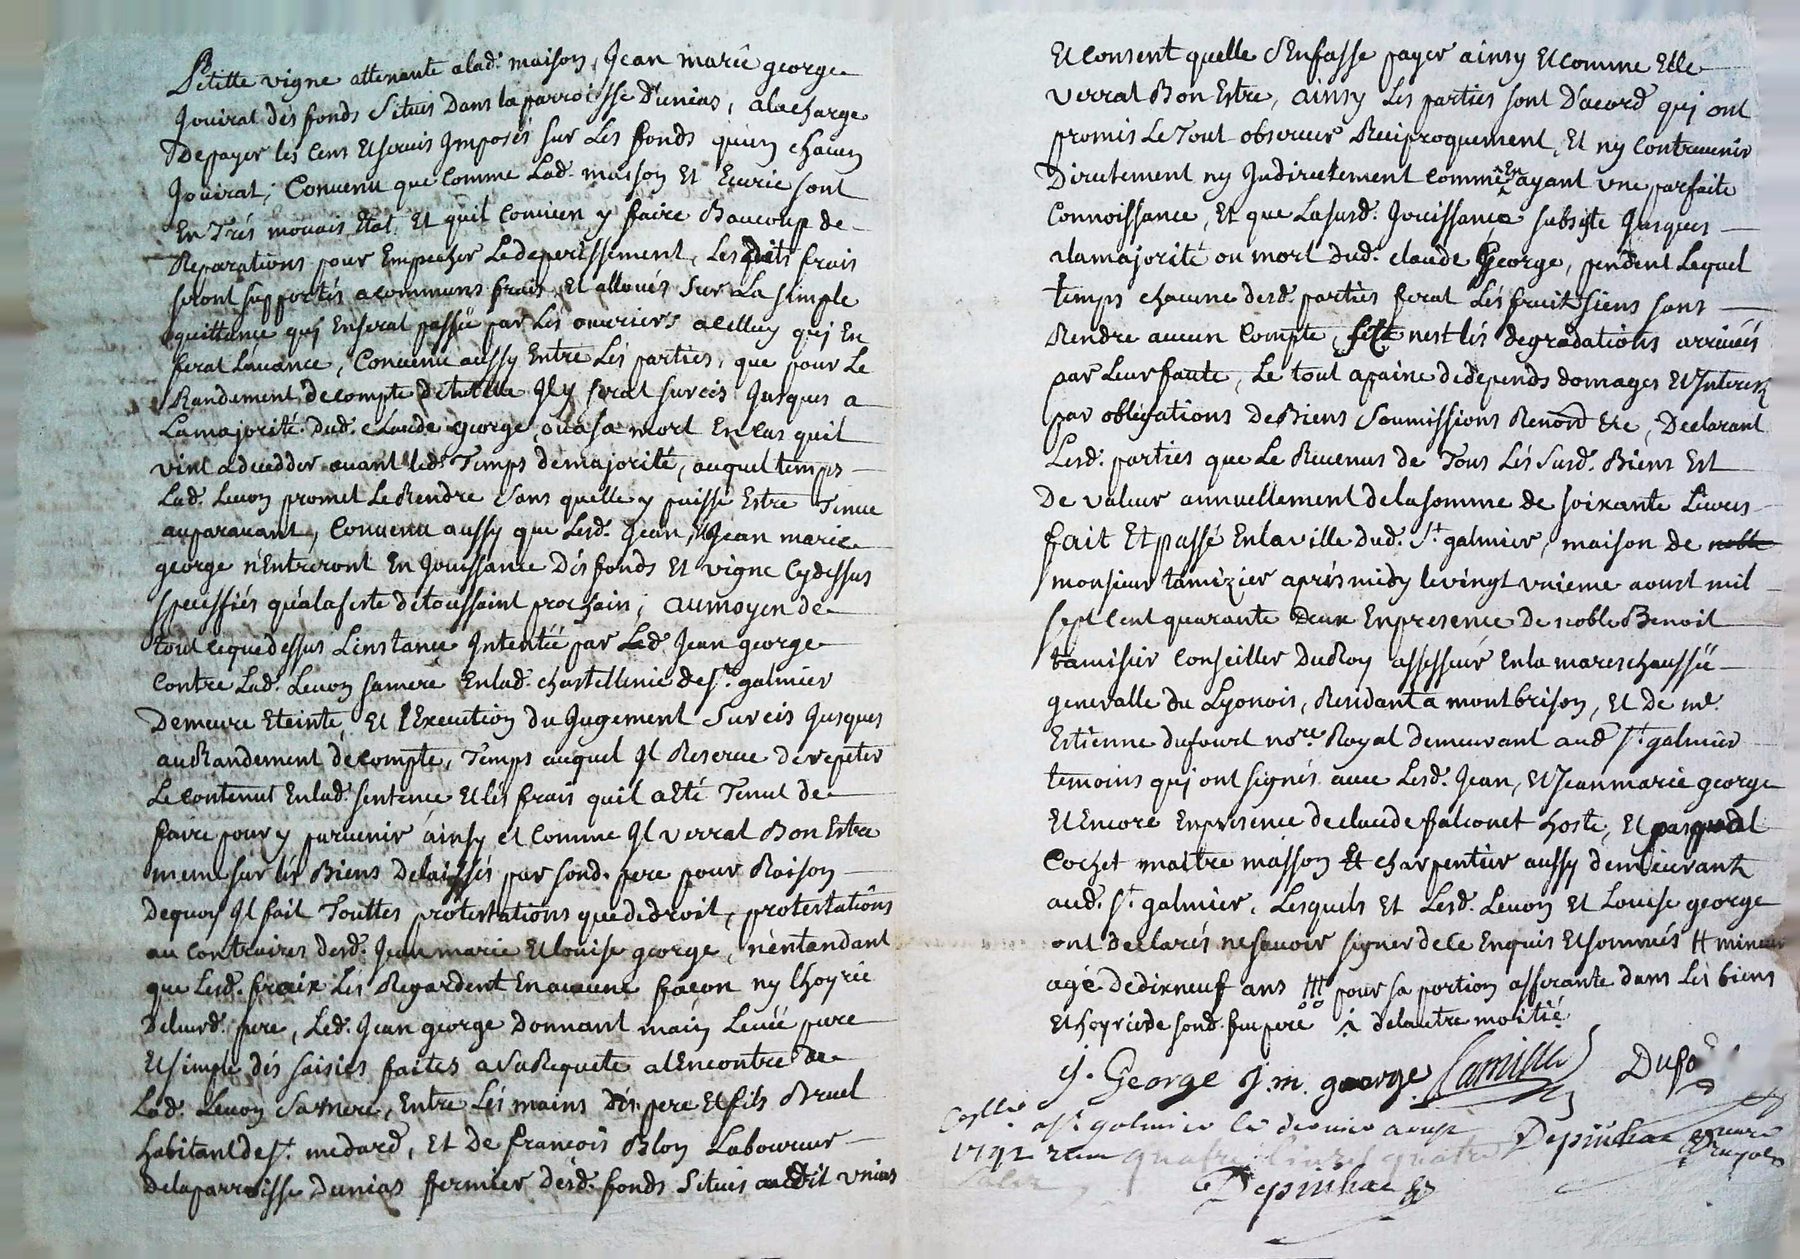 Petitte vigne attenante a lad. maison, Jean marie george
Jouirat des fonds Situés Dans la parroisse d'unias, a la charge
De payer les Cens Et servis Imposés sur Les fonds qu'un chacun
Jouirat; Convenu que Comme Lad. maison Et Ecurie sont
En Trés mouais Etat. Et quil Convien y faire Baucoup de
Reparations pour Empecher Le deperissement, Lesdits frais
seront supportés a communs frais, Et alloués Sur La simple
quittance quj Enserat passée par Lés ouvriers a celluy quj En
ferat L'avance, Convenu aussy Entre Lés parties, que pour Le
Randement de compte de tutelle Jl y serat surcis Jusques a
La majorité Dud. Claude George, ou a sa mort En Cas quil
vint a decedder avant led. Temps de majorité, auquel temps
Lad. Levon promet Le Rendre Sans quelle y puisse Estre Tenue
auparavant, Convenu aussy que Lesd. Jean, Et Jean marie
george n'Entreront En Jouissance Dés fonds Et vigne Cydessus
specifiés qu'a la feste de toussaint prochain; au moyen de
tout ce que dessus L'instance Intentée par Led. Jean george
Contre Lad. Levon samere En lad. chastellenie de St. galmier
Demeure Eteinte, Et l'Execution du Jugement Surcis Jusques
au Randement de compte, Temps auquel Jl Reserve de repeter
Le Contenut En lad. sentence Et les frais quil a Eté Tenut de
faire pour y parvenir ainsy et Comme Jl verrat Bon Estre
meme sur les Biens Delaissés par sond. pere pour Raison
Dequoy Jl fait Touttes protestations que de droit, protestations
au Contraires desd. Jean marie Et louise george, n'entendant
que Lesd. fraix Les Regardent En aucune facon ny L'hoyrie
De leurd. pere, Led. Jean george Donnant main Levée pure
Et simple dés saisies faites a Sa Requete a L'Encontre de
Lad. Levon Sa mere, Entre Lés mains Dés pere Et fils Bruel
habitant de St. medard, Et De francois Blon Laboureur
De la parroisse Dunias fermier desd. fonds Situés audit Unias
Et Consent quelle S'Enfasse payer ainsy Et Comme Elle
verrat Bon Estre, ainsy Les parties sont D'acord quj ont
promis Le Tout observer Reciproquement, Et ny Contrevenir
Directement ny Indirectement Comme En ayant une parfaite
Connoissance, Et que La susd. Jouissance subsiste Jusques
a la majorité ou mort dud. claude George, pendent Lequel
temps chacune desd. parties ferat Lés fruits siens sans
Rendre aucun Compte, sice nest lés degradations arrivées
par Leur faute, Le tout a paine de depends domages Et Interets
par obligations De Biens Soumissions Renond Etc, Declarant
Lesd. parties que Le Revenus de Tous Lés Susd. Biens Est
De valeur annuellement de la somme de soixante Livres
fait Et passé En la ville dud. St. galmier, maison de noble
monsieur tamizier aprés midy le vingt unieme aoust mil
sept Cent quarante Deux En presence De noble Benoit
tamisier Conseiller Du Roy assesseur En la mareschaussée
generalle du Lyonois, Residant a montbrison, Et De me.
Estienne dufourt nore. Royal demeurant aud St. galmier
temoins quj ont signés avec Lesd. Jean, Et Jean marie george
Et Encore En presence de claude falconet hoste, Et pasqual
Cochet maitre masson Et charpentier aussy demeurants
aud. St. galmier, Lesquels Et Lesd. Levon Et Louise george
ont declarés ne savoir signer de Ce Enquis Et sommés # mineur
agé de dixneuf ans ## pour sa portion afferante dans Lés biens
Et hoyrie de sond. feu pere ∴ de lautre moitié
J. George J. m. george Tamisier Dufo
a St. galmier le dernier aoust
1742 quatre livres quatre Depinhac
Depinhac